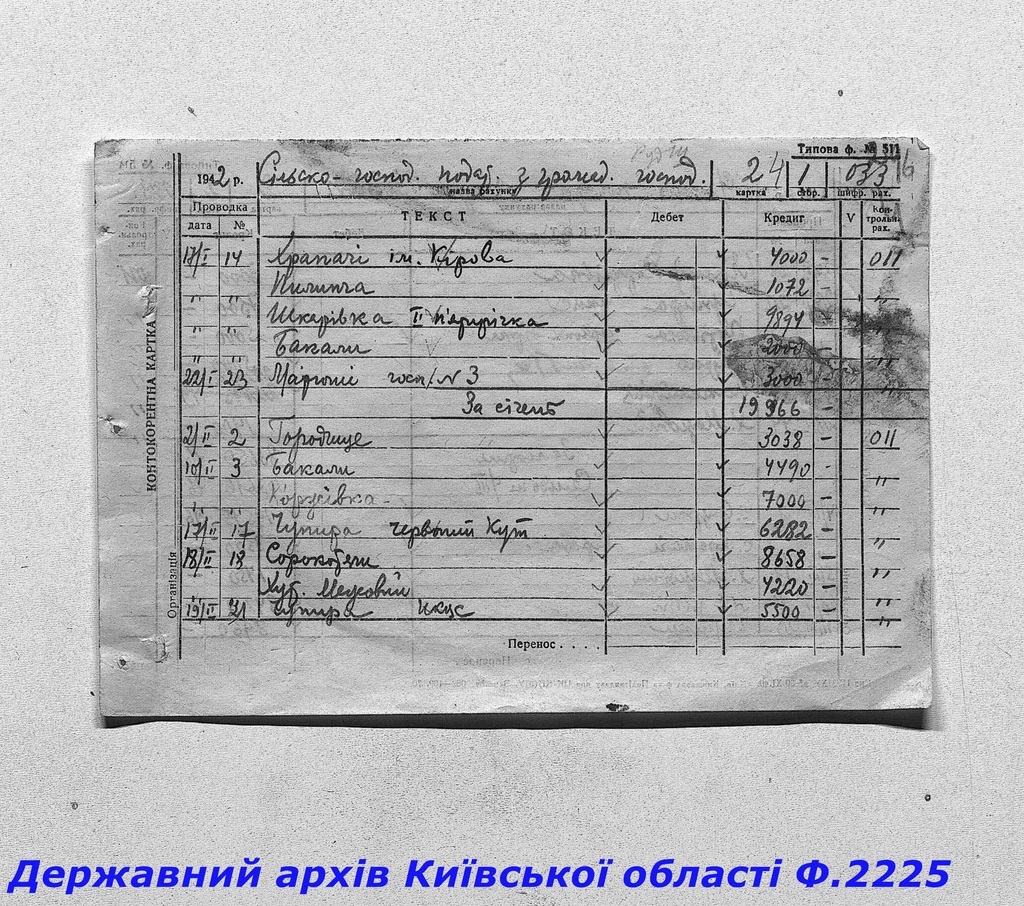 Типова ф. № 511
1942 р. Сільско-господ. подат. з громад. господ. 24 1 033
назва рахунку картка стор. шифр. рах.
Проводка ТЕКСТ Дебет Кредит V Контрольн. рах.
дата №
КОНТОКОРЕНТНА КАРТКА
Організація
17/I 14 Храпачі ім. Кірова 4000 – 011
" " Пилипча 1072 – "
" " Шкарівка II 9894 – "
" " Бакали 2000 – "
22/I 23 госп. N 3 3000 –
За січень 19966 –
2/II 2 Городище 3038 – 011
10/II 3 Бакали 4490 – "
" " 7000 – "
17/II 17 Чупира Червоний Кут 6282 – "
18/II 18 Сорокотяги 8658 – "
Хут. 4220 – "
19/II 21 Чупира 5500 – "
Перенос . . . .
Державний архів Київської області Ф.2225